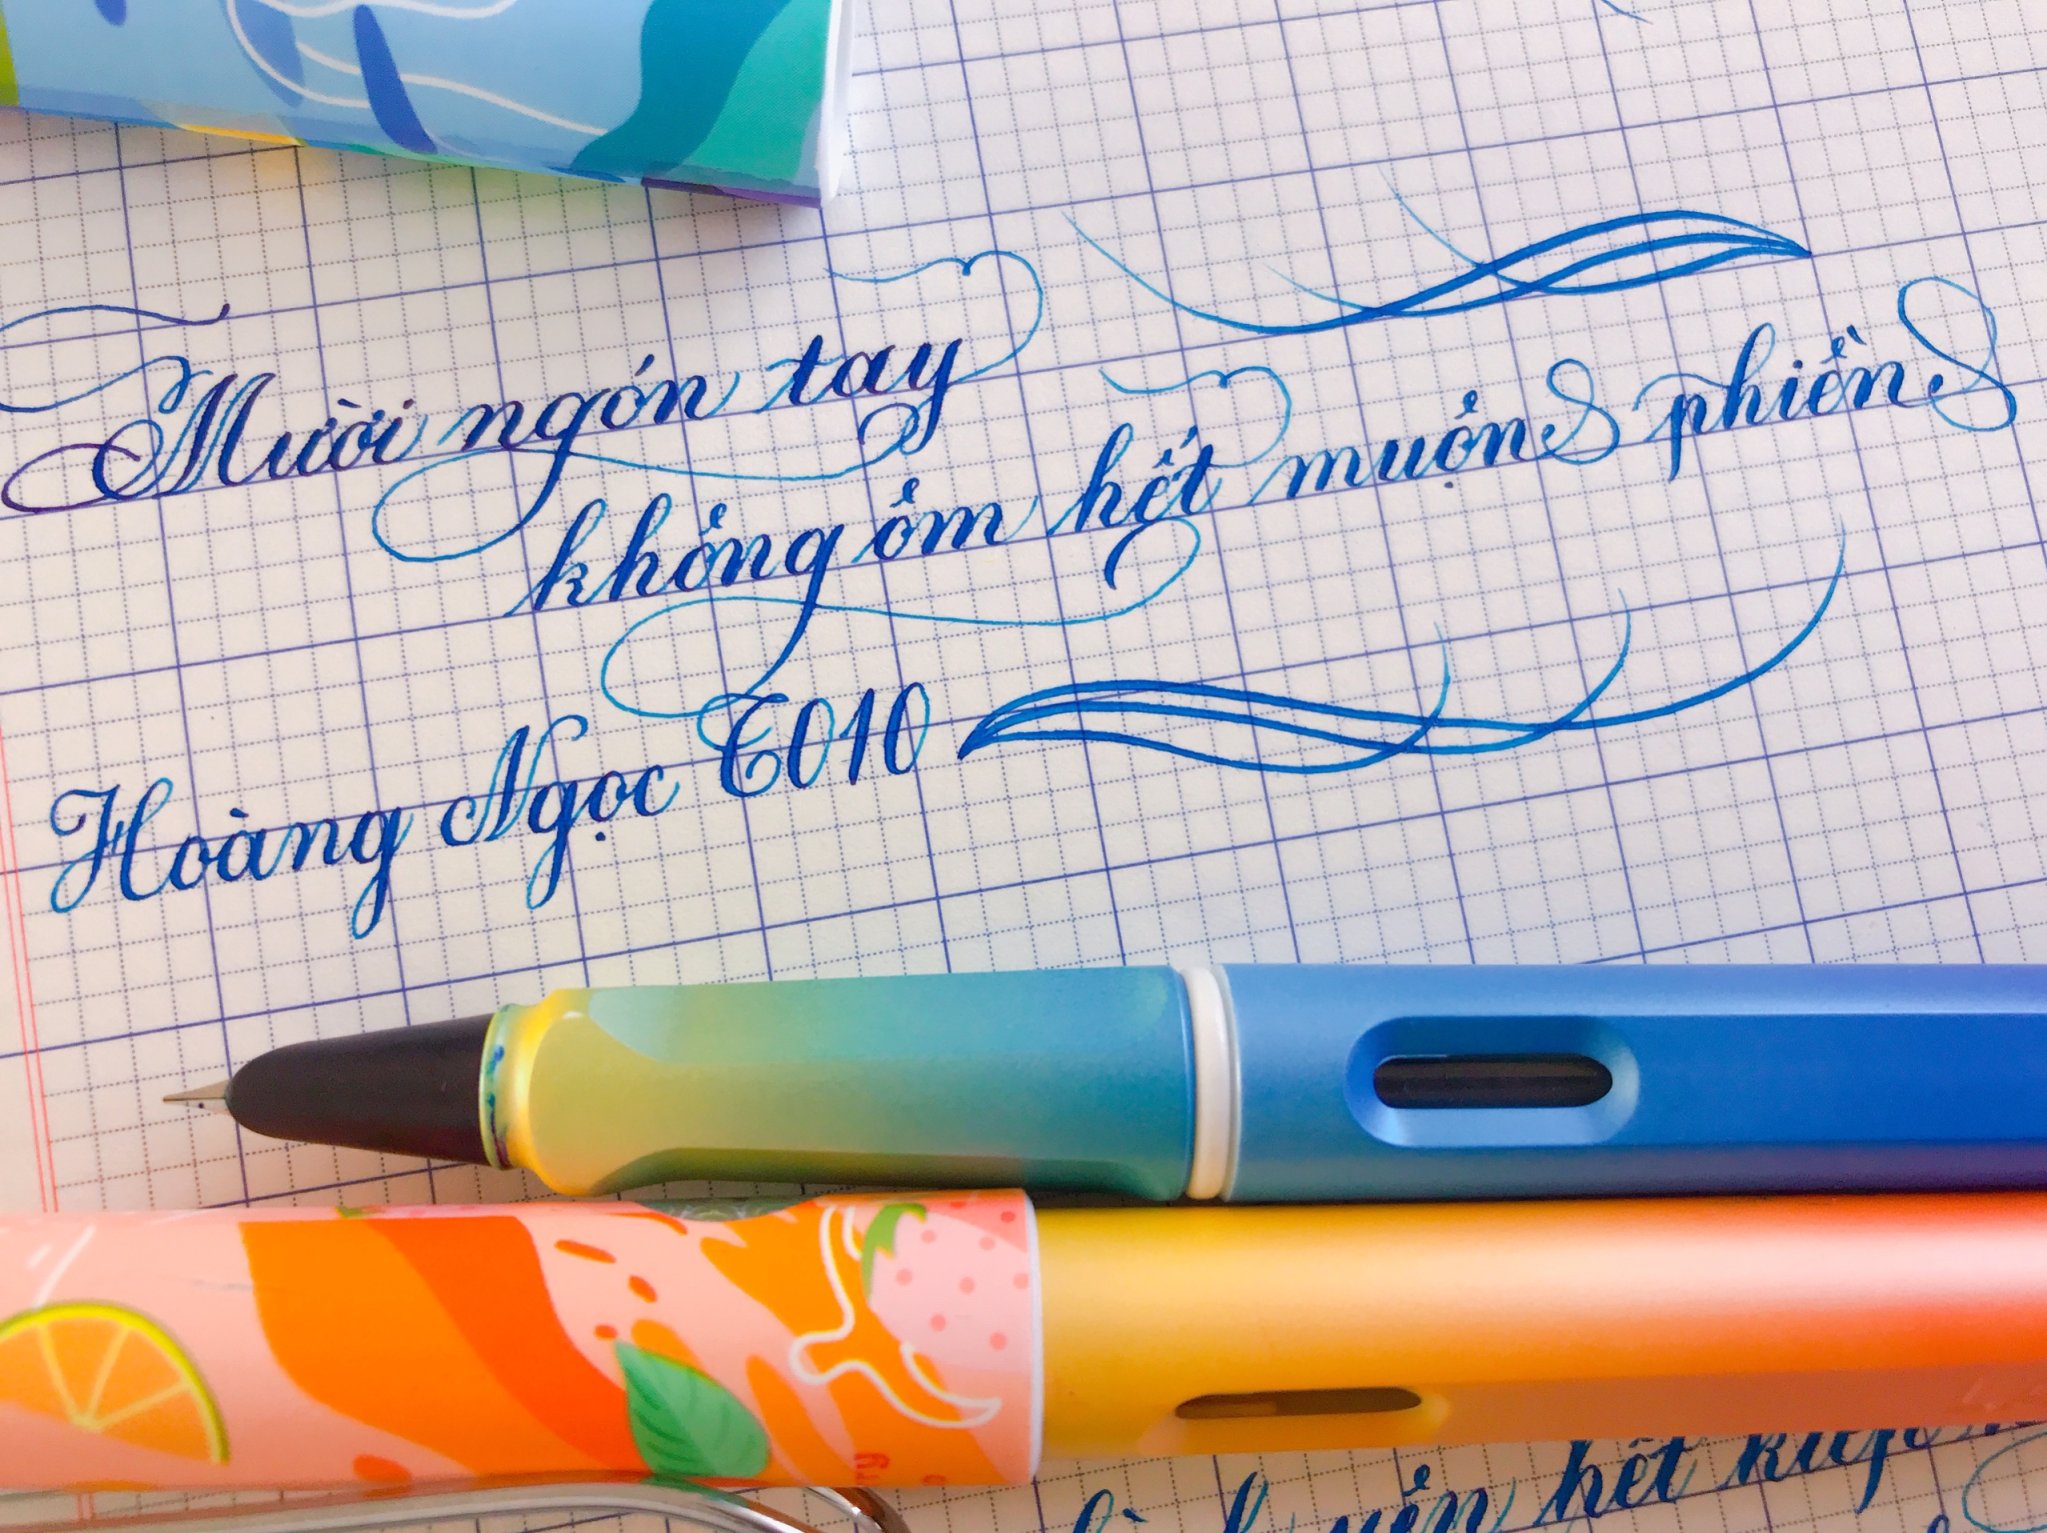 Mười ngón tay
không ôm hết muộn phiền
Hoàng Ngọc T010
hết